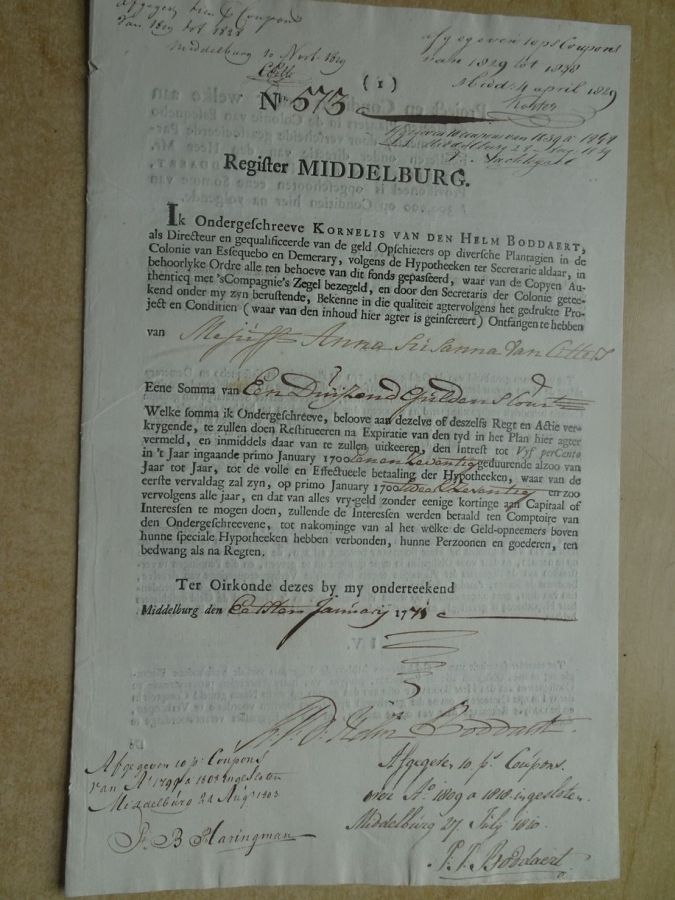 Afgegeven tien p Coupons
van 1819 tot 1828
Middelburg 10 Novb. 1819
afgegeven 10 ps Coupons
van 1829 tot 1838
Midd: 4 april 1829
(1)
No. 573
Afgegeven 10 coupons van 1839 a 1848
Middelburg
Register MIDDELBURG.
Ik Ondergeschreeve KORNELIS VAN DEN HELM BODDAERT,
als Directeur en gequalificeerde van de geld Opschieters op diversche Plantagien in de
Colonie van Essequebo en Demerary, volgens de Hypotheeken ter Secretarie aldaar, in
behoorlyke Ordre alle ten behoeve van dit fonds gepasseerd, waar van de Copyen Au-
thenticq met 'sCompagnie's Zegel bezegeld, en door den Secretaris der Colonie getee-
kend onder my zyn berustende, Bekenne in die qualiteit agtervolgens het gedrukte Pro-
ject en Conditien ( waar van den inhoud hier agter is geinsereert ) Ontfangen te hebben
van Mejuff. Anna Susanna Van Citters
Eene Somma van Een Duijzend Guldens Cour:
Welke somma ik Ondergeschreeve, beloove aan dezelve of deszelfs Regt en Actie ver-
krygende, te zullen doen Restitueeren na Expiratie van den tyd in het Plan hier agter
vermeld, en inmiddels daar van te zullen uitkeeren, den Intrest tot Vyf per Cento
in 't Jaar ingaande primo January 1700 Eenen Zeventig geduurende alzoo van
Jaar tot Jaar, tot de volle en Effectueele betaaling der Hypotheeken, waar van de
eerste vervaldag zal zyn, op primo January 1700 Twee Zeventig en zoo
vervolgens alle jaar, en dat van alles vry-geld zonder eenige kortinge aan Capitaal of
Interessen te mogen doen, zullende de Interessen werden betaald ten Comptoire van
den Ondergeschreevene, tot nakominge van al het welke de Geld-opneemers boven
hunne speciale Hypotheeken hebben verbonden, hunne Perzoonen en goederen, ten
bedwang als na Regten.
Ter Oirkonde dezes by my onderteekend
Middelburg den Eersten January 1771
K. V. D. Helm Boddaert.
Afgegeven 10 ps Coupons
van Ao 1799 a 1808 ingesloten
Middelburg 22 Augt 1803
F. B. Haringman
Afgegeven 10 ps Coupons.
over Ao 1809 a 1818 ingesloten.
Middelburg 27 July 1810.
P. J. Boddaert